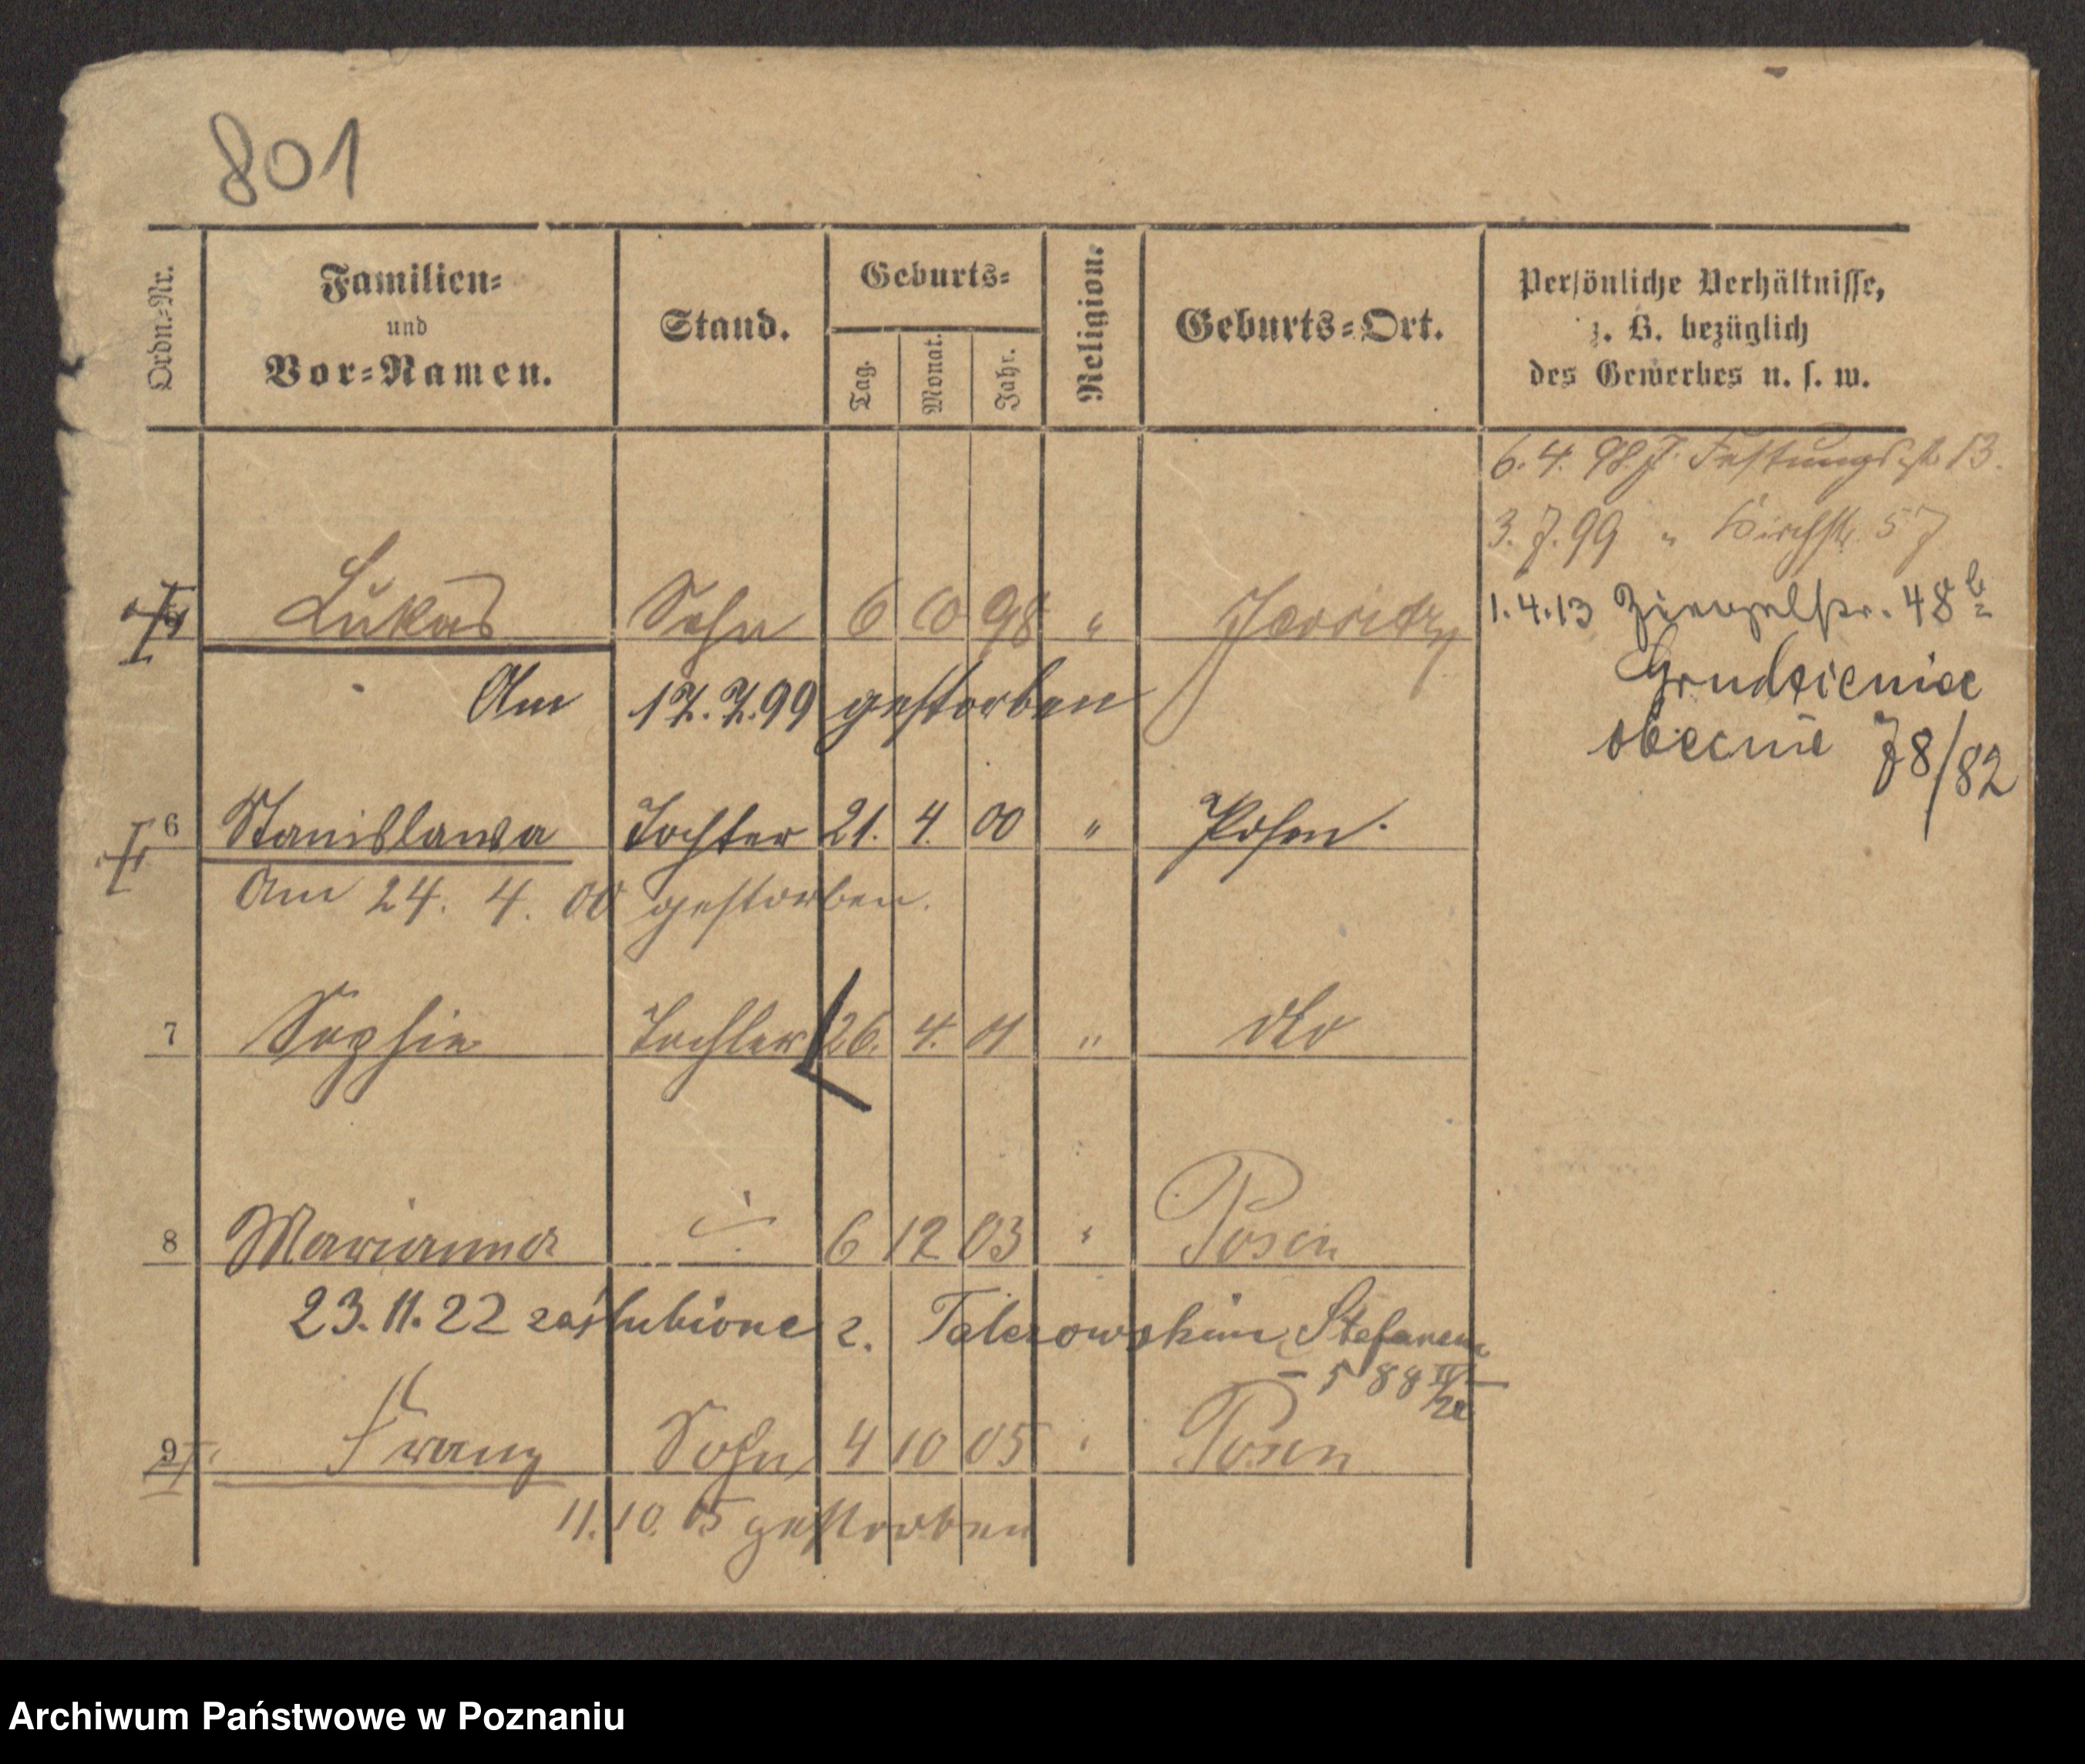 801
Ordn.=Nr.
Familien=
und
Vor=Namen.
Stand.
Geburts=
Tag.
Monat.
Jahr.
Religion.
Geburts=Ort.
Persönliche Verhältnisse,
z. B. bezüglich
des Gewerbes u. s. w.
6. 4. 98. J. Festungsstr 13.
3. 7. 99 " Kirchstr. 57
Lukas Sohn 6 10 98 "
1.4.13 48 b
Am 17.7.99 gestorben
Grudzieniec
obecnie 78/82
6 Stanislawa Tochter 21. 4. 00 " Posen.
Am 24. 4. 00 gestorben.
7 Sophie Tochter 26. 4. 01 " dto
8 Marianna 6 12 03 " Posen
23.11.22 zaślubione z. Talerowskim Stefanem
9 Franz Sohn 4 10 05 " Posen
11. 10. 05 gestorben
Archiwum Państwowe w Poznaniu